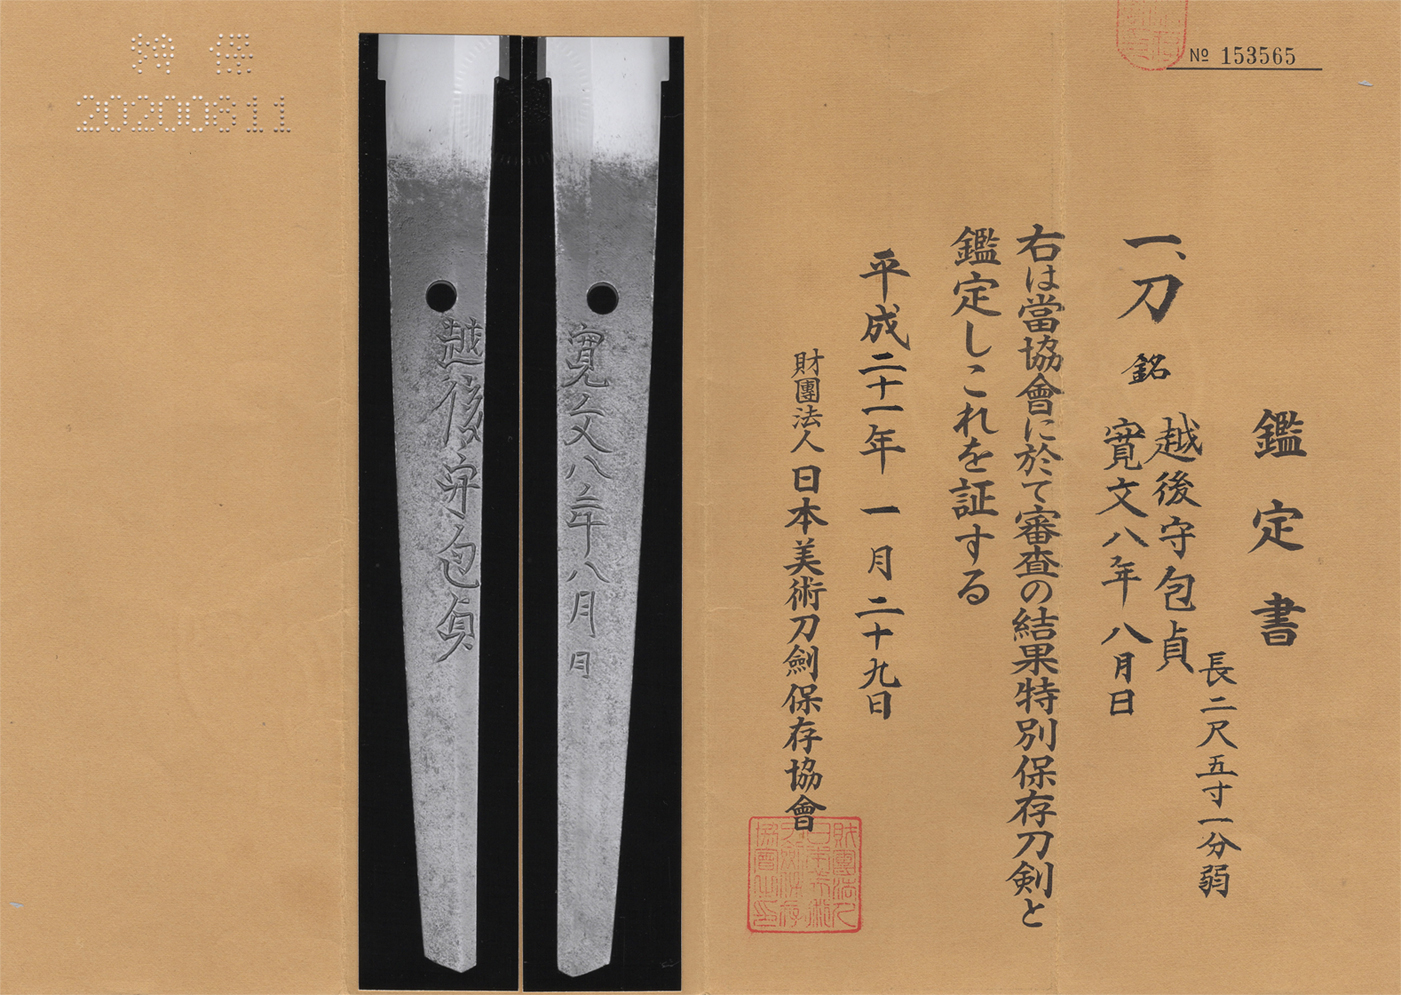 № 153565
鑑定書
一、刀 銘 越後守包貞
寛文八年八月日
長二尺五寸一分弱
右は當協會に於て審査の結果特別保存刀剣と
鑑定しこれを証する
平成二十一年一月二十九日
財團法人日本美術刀劍保存協會
寛文八年八月日
越後守包貞
特保
20200811